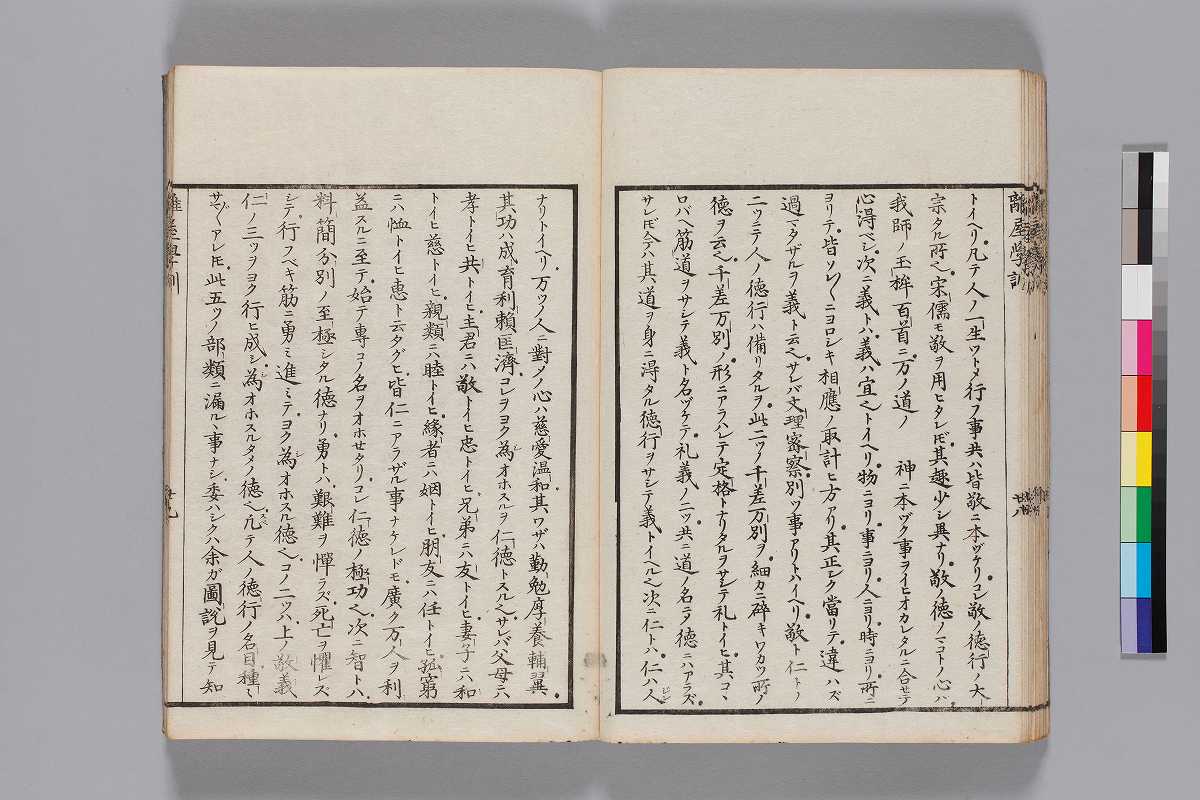 トイヘリ凡テ人ノ一生ツトメ行フ事共ハ皆敬ニ本ヅケリコレ敬ノ徳行ノ大
宗タル所也宋儒モ敬ヲ用ヒタレ𪜈其趣少シ異ナリ敬ノ徳ノマコトノ心ハ
我師ノ玉鉾百首ニ万ノ道ノ 神ニ本ヅク事ヲイヒオカレタルニ合セテ
心得ベシ次ニ義トハ義ハ宜也トイヘリ物ニヨリ事ニヨリ人ニヨリ時ニヨリ所ニ
ヨリテ皆ソレ〱ニヨロシキ相應ノ取計ヒ方アリ其正シク當リテ違ハズ
過マタザルヲ義ト云也サレバ文理密察別ツ事アリトハイヘリ敬ト仁トノ
二ツニテ人ノ徳行ハ備リタルヲ此二ツノ千差万別ヲ細カニ碎キワカツ所ノ
徳ヲ云也千差万別ノ形ニアラハレテ定格トナリタルヲサシテ礼トイヒ其コヽ
ロバヘ筋道ヲサシテ義ト名ヅケテ礼義ノ二ツ共ニ道ノ名ニテ徳ニハアラズ
サレ𪜈今ハ其道ヲ身ニ得タル徳行ヲサシテ義トイヘル也次ニ仁トハ仁ハ人
ナリトイヘリ万ツノ人ニ對メノ心ハ慈愛温和其ワザハ勤勉厚養輔翼
其功ハ成育利頼匡濟コレヲヨク為オホスルヲ仁徳トスル也サレバ父母ニハ
孝トイヒ共トイヒ主君ニハ敬トイヒ忠トイヒ兄弟ニハ友トイヒ妻子ニハ和
トイヒ慈トイヒ親類ニハ睦トイヒ縁者ニハ姻トイヒ朋友ニハ任トイヒ孤窮
ニハ恤トイヒ恵ト云タグヒ皆仁ニアラザル事ナケレドモ廣ク万人ヲ利
益スルニ至テ始テ專コノ名ヲオホセタリコレ仁徳ノ極功也次ニ智トハ
料簡分別ノ至極シタル徳ナリ勇トハ艱難ヲ憚ラズ死亡ヲ懼レズ
シテ行フベキ筋ニ勇ミ進ミテヨク為オホスル徳也コノ二ツハ上ノ敬義
仁ノ三ツヲヨク行ヒ成シ為オホスルタメノ徳也凡テ人ノ徳行ノ名目種ミ
サマ〲アレ𪜈此五ツノ部類ニ漏ルヽ事ナシ委ハシクハ余ガ圖説ヲ見テ知